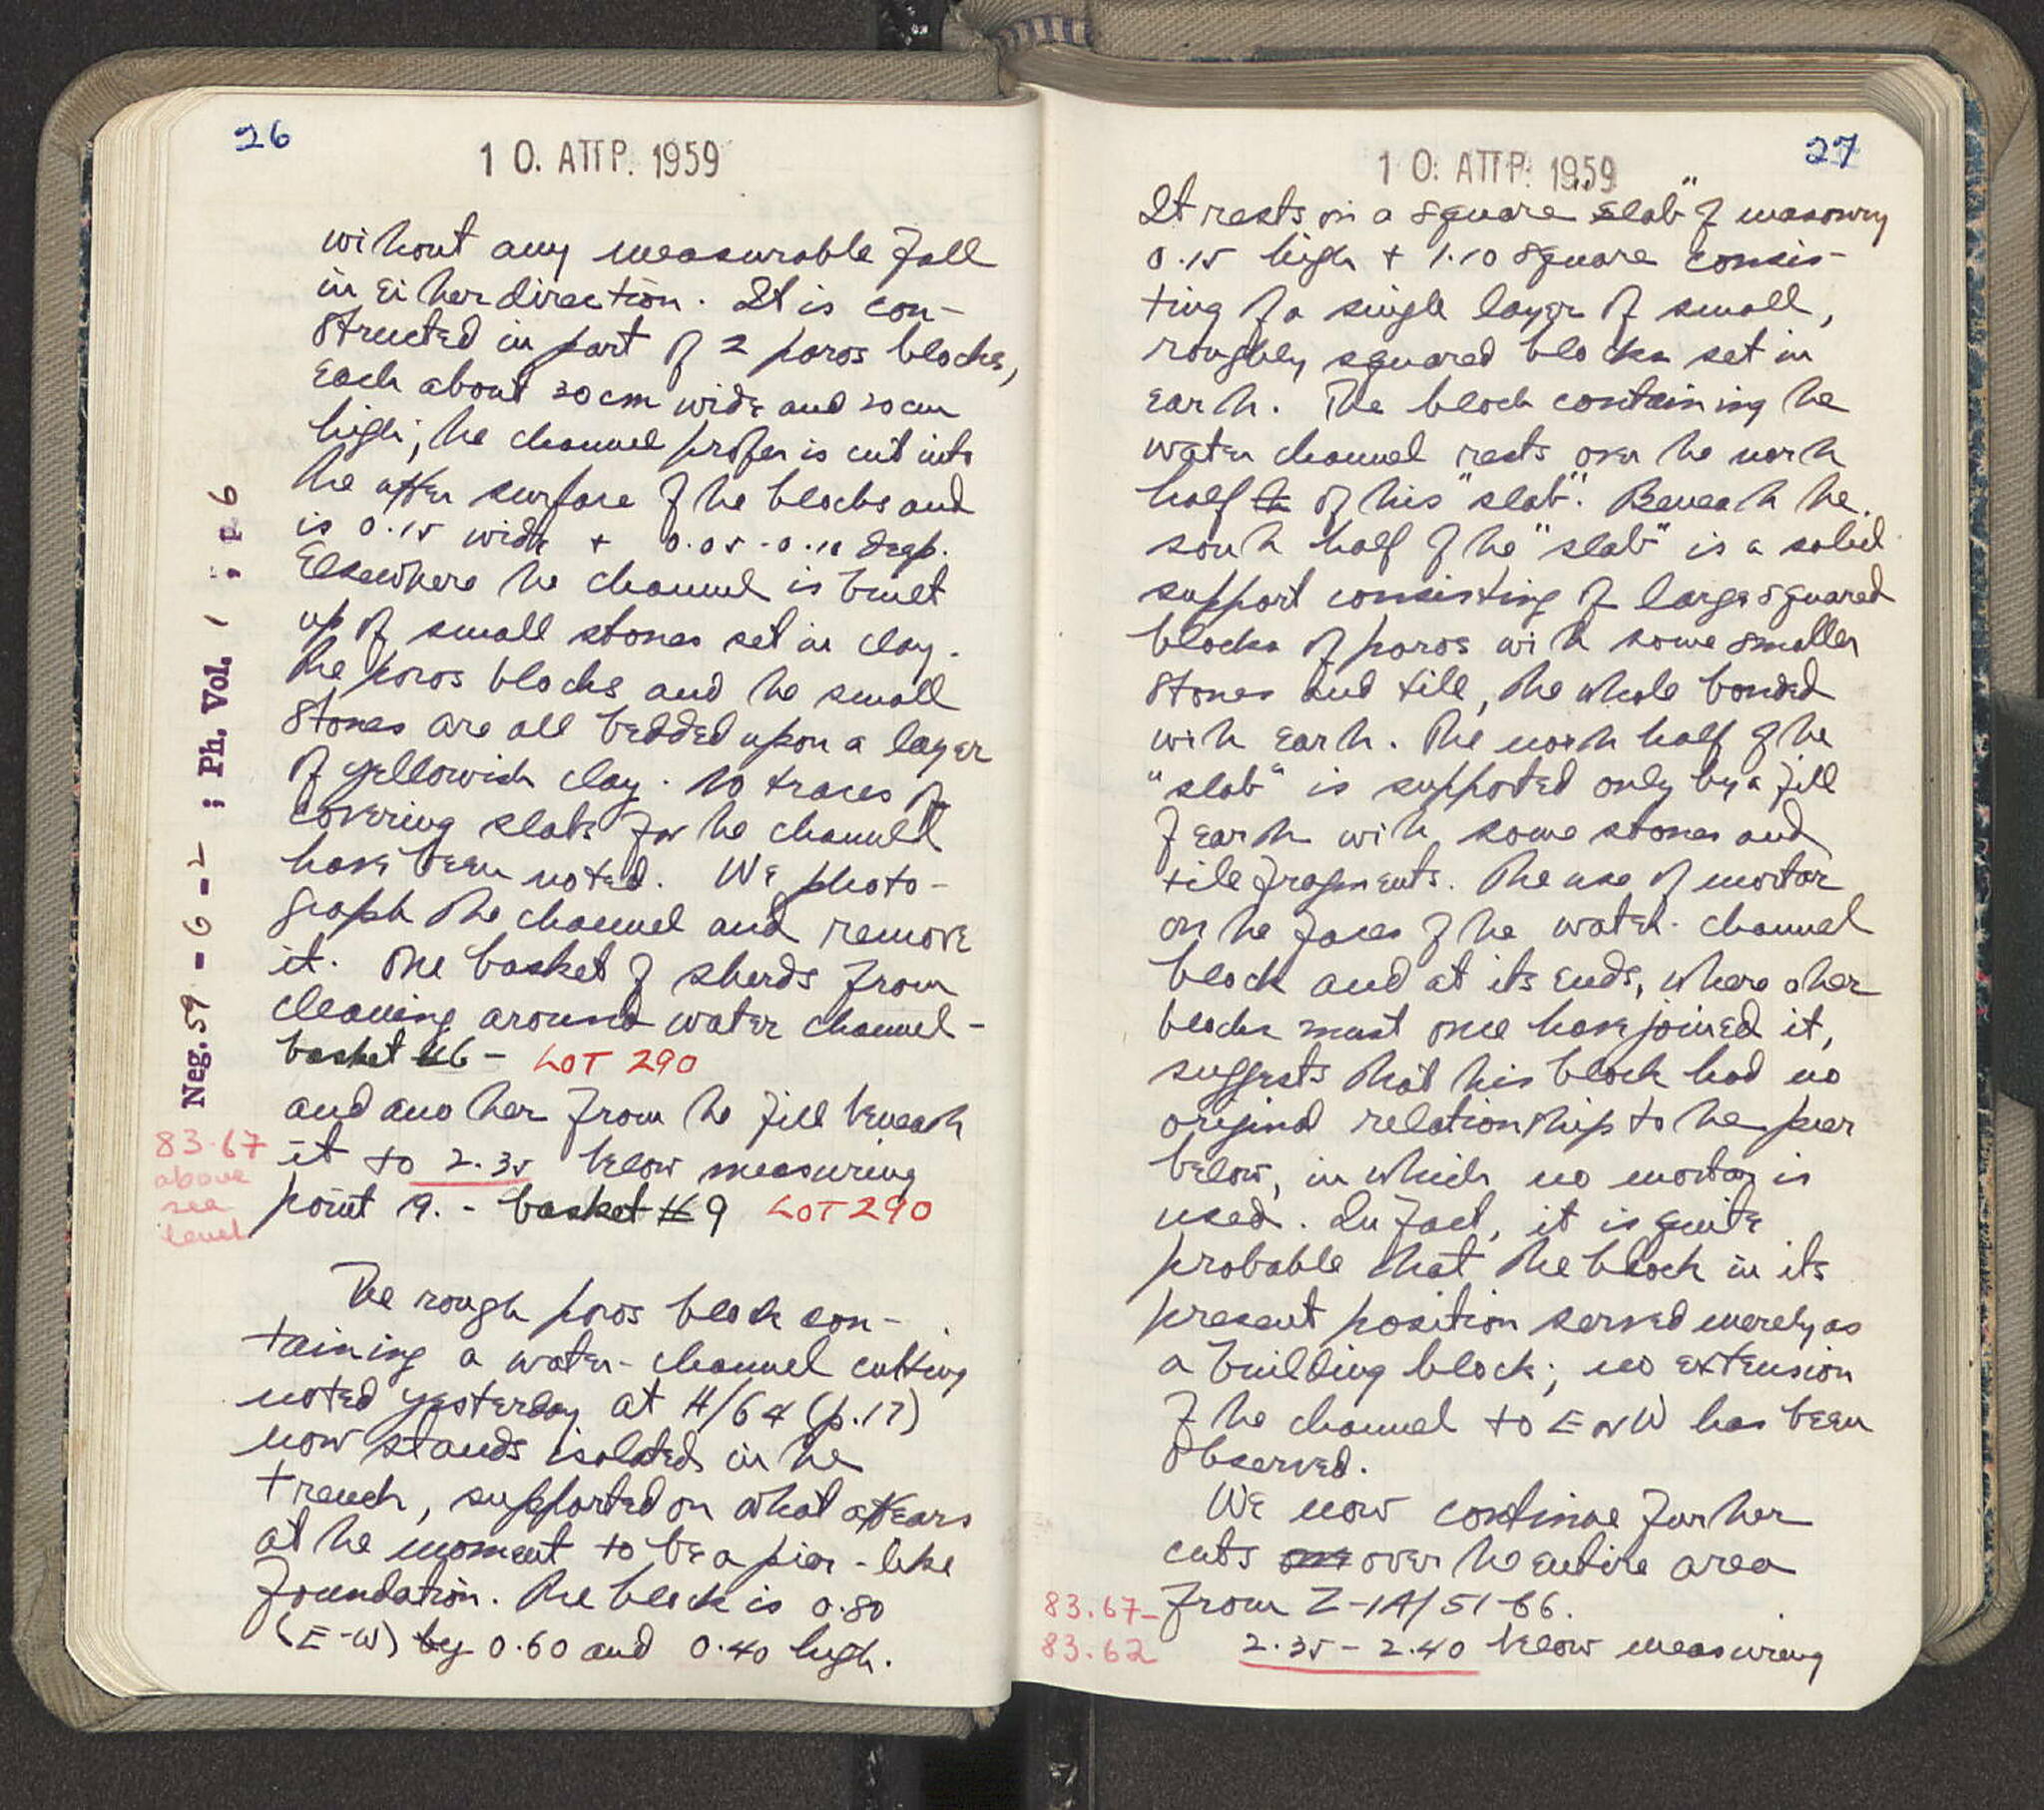 26
10. ΑΠΡ. 1959
without any measurable fall
in either direction. It is con-
structed in part of 2 poros blocks,
each about 30cm wide and 20cm
high; the channel proper is cut into
the upper surface of the blocks and
is 0.15 wide + 0.05-0.10 deep.
Elsewhere the channel is built
up of small stones set in clay.
The poros blocks and the small
stones are all bedded upon a layer
of yellowish clay. No traces of
covering slabs for the channel
have been noted. We photo-
graph the channel and remove
it. One basket of sherds from
cleaning around water channel -
basket #6 - LOT 290
and another from the fill beneath
it to 2.35 below measuring
point A. - basket #9 LOT 290
83.67
above
sea
level
Neg. 59 - 6 - 2 ; Ph. Vol. 1 ; p 6
The rough poros block con-
taining a water-channel cutting
noted yesterday at H/64 (p.17)
now stands isolated in the
trench, supported on what appears
at the moment to be a pier-like
foundation. The block is 0.80
(E-W) by 0.60 and 0.40 high.
27
10. ΑΠΡ. 1959
It rests on a square "slab" of masonry
0.15 high + 1.10 square consis-
ting of a single layer of small,
roughly squared blocks set in
earth. The block containing the
water channel rests over the north
half of this "slab". Beneath the
south half of the "slab" is a solid
support consisting of large squared
blocks of poros with some smaller
stones and tile, the whole bonded
with earth. The north half of the
"slab" is supported only by a fill
of earth with some stones and
tile fragments. The use of mortar
on the faces of the water-channel
block and at its ends, where other
blocks must once have joined it,
suggests that this block had no
original relationship to the pier
below, in which no mortar is
used. In fact, it is quite
probable that the block in its
present position served merely as
a building block; no extension
of the channel to E or W has been
observed.
We now continue further
cuts over the entire area
from Z-IA/51-66.
83.67-
83.62
2.35 - 2.40 below measuring